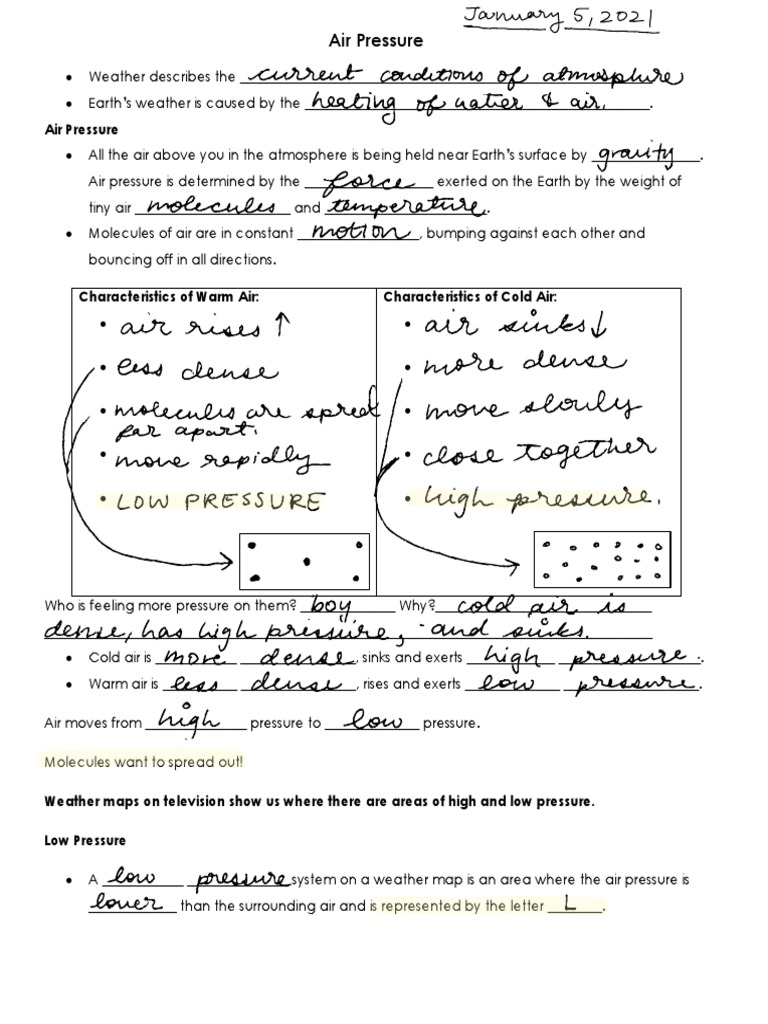 January 5, 2021
Air Pressure
• Weather describes the current conditions of atmosphere
• Earth's weather is caused by the heating of water & air.
Air Pressure
• All the air above you in the atmosphere is being held near Earth's surface by gravity.
Air pressure is determined by the force exerted on the Earth by the weight of
tiny air molecules and temperature.
• Molecules of air are in constant motion, bumping against each other and
bouncing off in all directions.
Characteristics of Warm Air:
• air rises ↑
• less dense
• molecules are spread
far apart.
• move rapidly
• LOW PRESSURE
Characteristics of Cold Air:
• air sinks ↓
• more dense
• move slowly
• close together
• high pressure.
Who is feeling more pressure on them? boy Why? cold air is
dense, has high pressure, and sinks.
• Cold air is more dense, sinks and exerts high pressure.
• Warm air is less dense, rises and exerts low pressure.
Air moves from high pressure to low pressure.
Molecules want to spread out!
Weather maps on television show us where there are areas of high and low pressure.
Low Pressure
• A low pressure system on a weather map is an area where the air pressure is
lower than the surrounding air and is represented by the letter L.